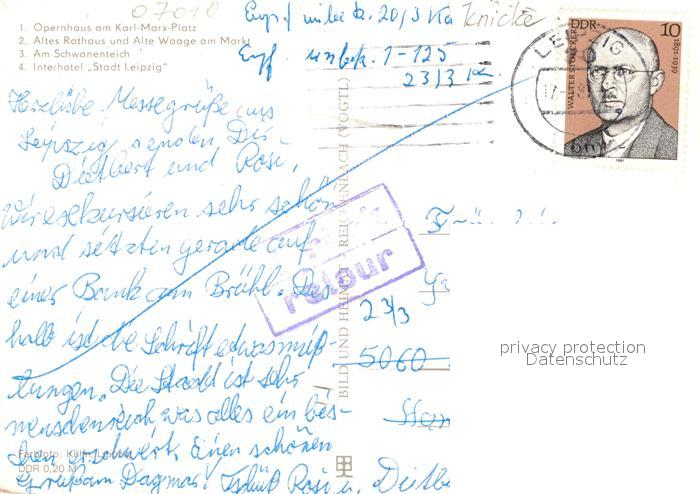 07010
1. Opernhaus am Karl-Marx-Platz
2. Altes Rathaus und Alte Waage am Markt
3. Am Schwanenteich
4. Interhotel „Stadt Leipzig"
Empf 20/3
Knicke
Empf. unbek. 1-125
23/3
DDR
10
WALTER STOECKER
1891-1939
1981
LEIPZIG
Herzliche Messegrüße aus
Leipzig senden Dir
Dietbert und Rosi,
Wir exkursieren sehr schön
und setzten gerade auf
einer Bank am Brühl. Des-
halb ist die Schrift etwas miß-
lungen. Die Stadt ist sehr
menschenreich, was alles ein bis-
chen erschwert. Einen schönen
Gruß am Dagmar! Tschüß Rosi u. Dietbe
zurück
retour
BILD UND HEIMAT REICHENBACH (VOGTL)
Frä
23/3
5060
privacy protection
Datenschutz
Farbfoto: Kühn, Leipzig
DDR 0,20 M